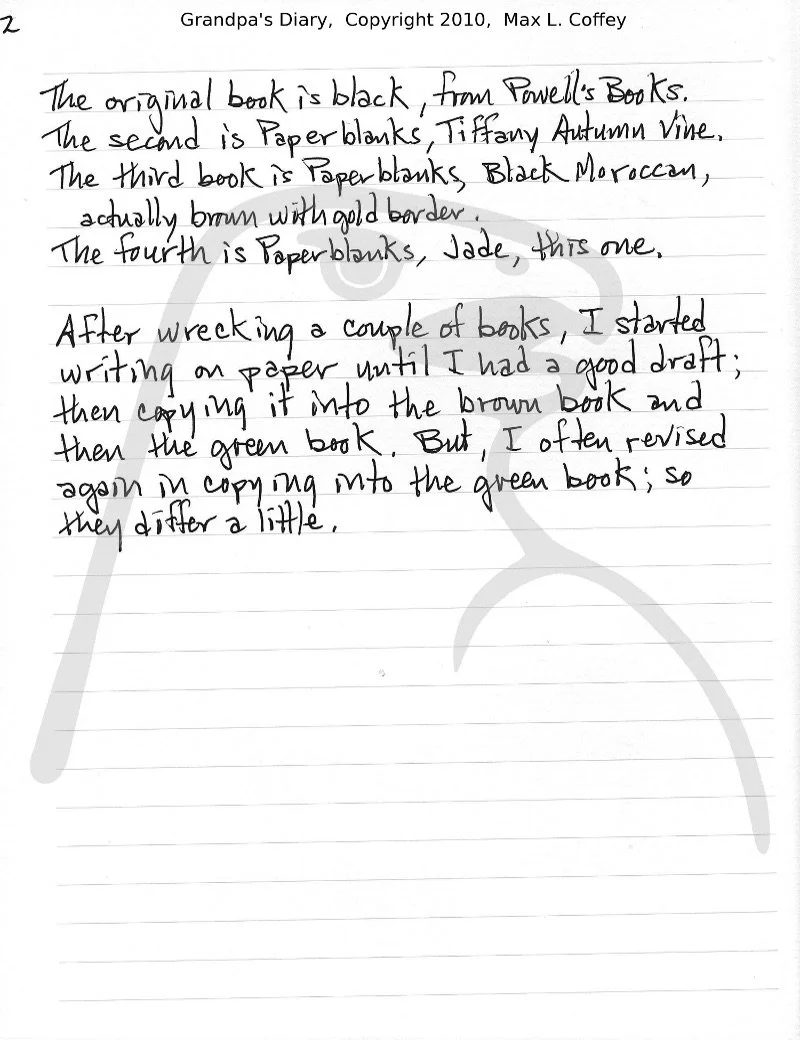 2
Grandpa's Diary, Copyright 2010, Max L. Coffey
The original book is black, from Powell's Books.
The second is Paperblanks, Tiffany Autumn Vine.
The third book is Paperblanks, Black Moroccan,
actually brown with gold border.
The fourth is Paperblanks, Jade, this one.
After wrecking a couple of books, I started
writing on paper until I had a good draft;
then copying it into the brown book and
then the green book. But, I often revised
again in copying into the green book; so
they differ a little.